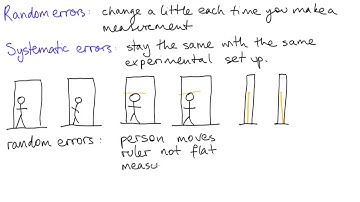 Random errors: change a little each time you make a
measurement
Systematic errors: stay the same with the same
experimental set up.
random errors: person moves
ruler not flat
measu